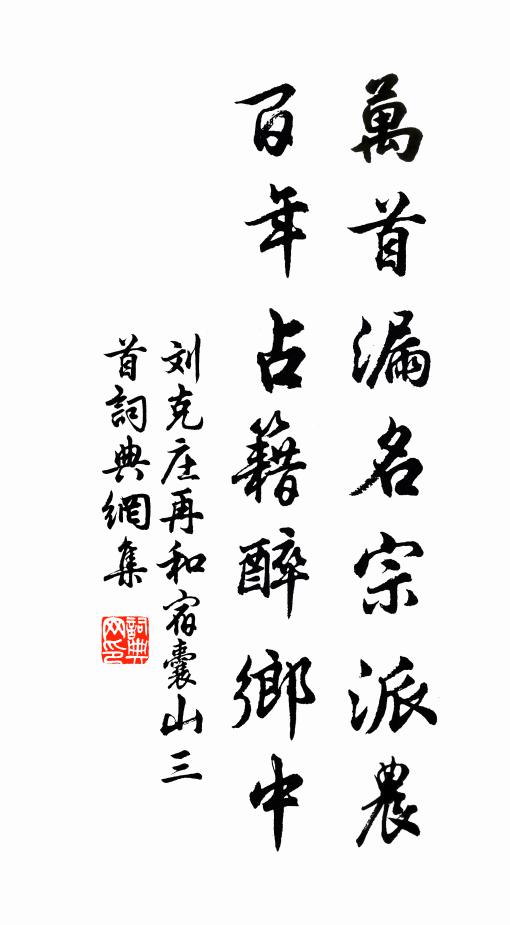 萬首漏名宗派農
百年占籍醉鄉中
刘克庄再和宿囊山三
首詞典網集
詞典网印